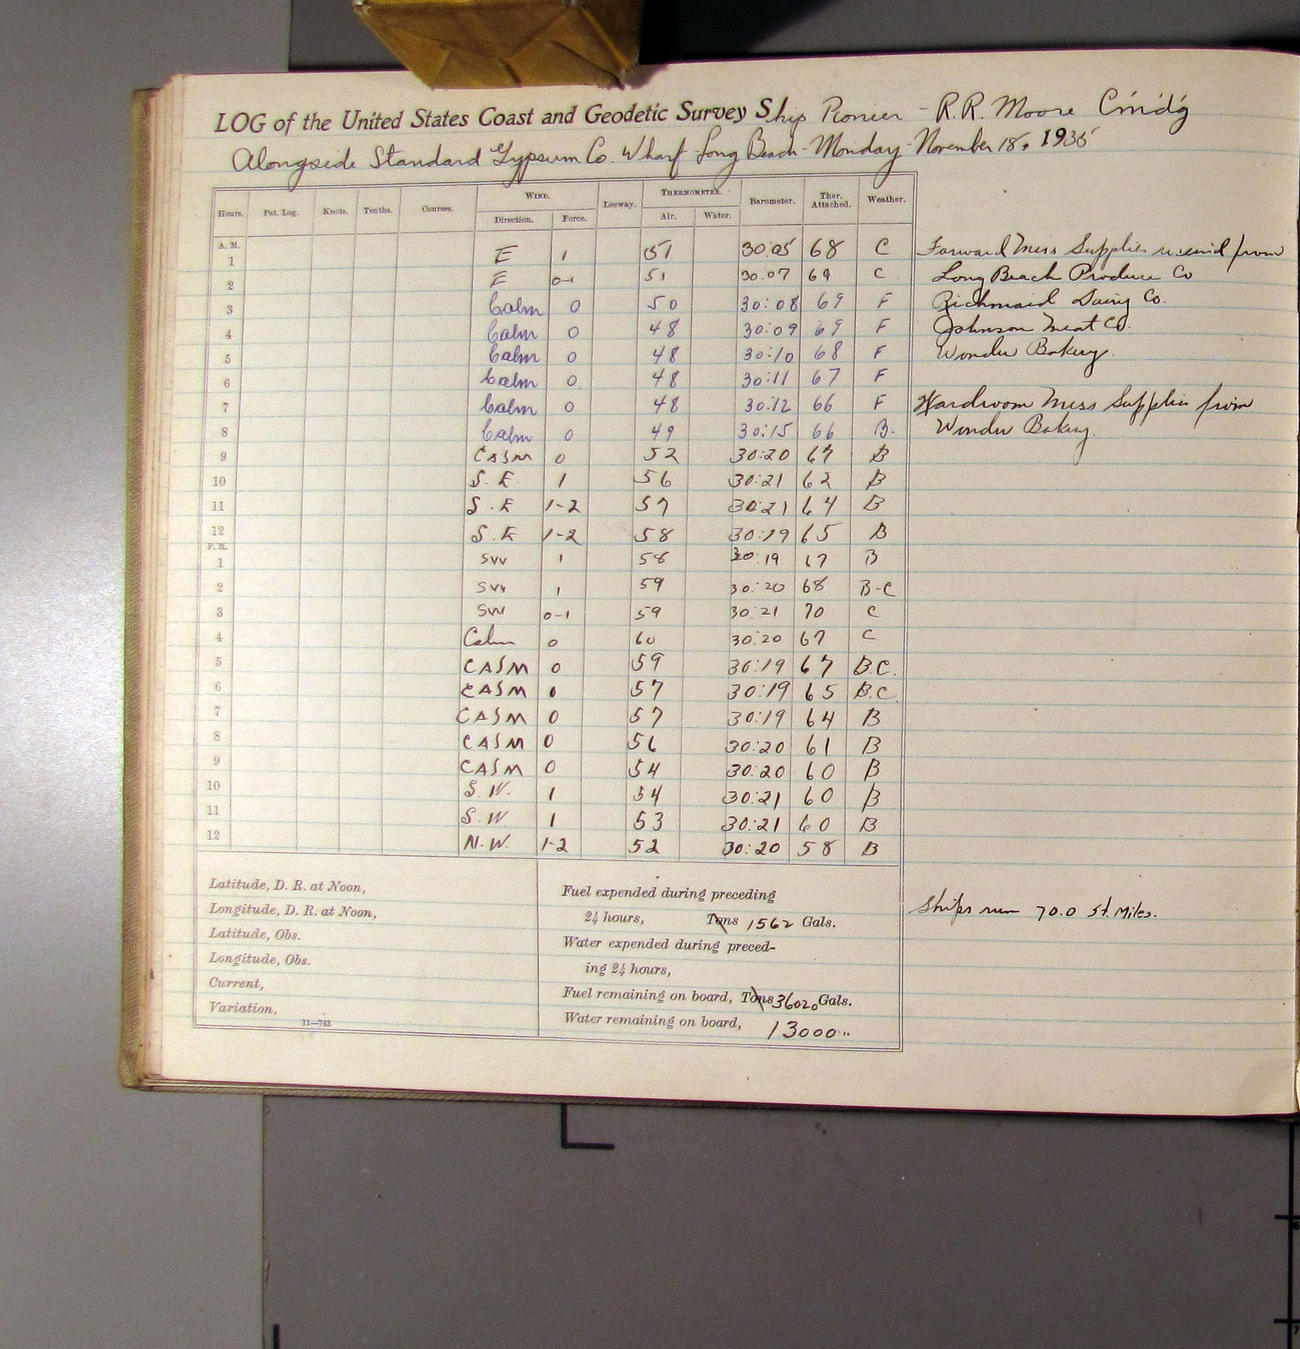 LOG of the United States Coast and Geodetic Survey Ship Pioneer - R.R. Moore Cmdg
Alongside Standard Gypsum Co. Wharf Long Beach - Monday - November 18, 1935
Hours. Pat. Log. Knots. Tenths. Courses. WIND. Leeway. THERMOMETER. Barometer. Ther. Attached. Weather.
Direction. Force. Air. Water.
A. M.
1 E 1 51 30.05 68 C Forward Mess Supplies received from
2 E 0-1 51 30.07 69 C Long Beach Produce Co
3 Calm 0 50 30:08 69 F Richmaid Dairy Co.
4 Calm 0 48 30:09 69 F Johnson Meat Co.
5 Calm 0 48 30:10 68 F Wonder Bakery.
6 Calm 0 48 30:11 67 F
7 Calm 0 48 30:12 66 F Wardroom Mess Supplies from
8 Calm 0 49 30:15 66 B. Wonder Bakery.
9 CALM 0 52 30:20 67 B
10 S. E. 1 56 30:21 62 B
11 S. E 1-2 57 30:21 64 B
12 S. E 1-2 58 30:19 65 B
P. M.
1 SW 1 58 30:19 67 B
2 SW 1 59 30:20 68 B-C
3 SW 0-1 59 30:21 70 C
4 Calm 0 60 30:20 67 C
5 CALM 0 59 30:19 67 B.C.
6 CALM 0 57 30:19 65 B.C.
7 CALM 0 57 30:19 64 B
8 CALM 0 56 30:20 61 B
9 CALM 0 54 30:20 60 B
10 S. W. 1 54 30:21 60 B
11 S. W 1 53 30:21 60 B
12 N. W. 1-2 52 30:20 58 B
Latitude, D. R. at Noon,
Longitude, D. R. at Noon,
Latitude, Obs.
Longitude, Obs.
Current,
Variation,
11—743
Fuel expended during preceding
24 hours, Tons 1562 Gals.
Water expended during preced-
ing 24 hours,
Fuel remaining on board, Tons 36020 Gals.
Water remaining on board, 13000 "
Ships run 70.0 St. Miles.